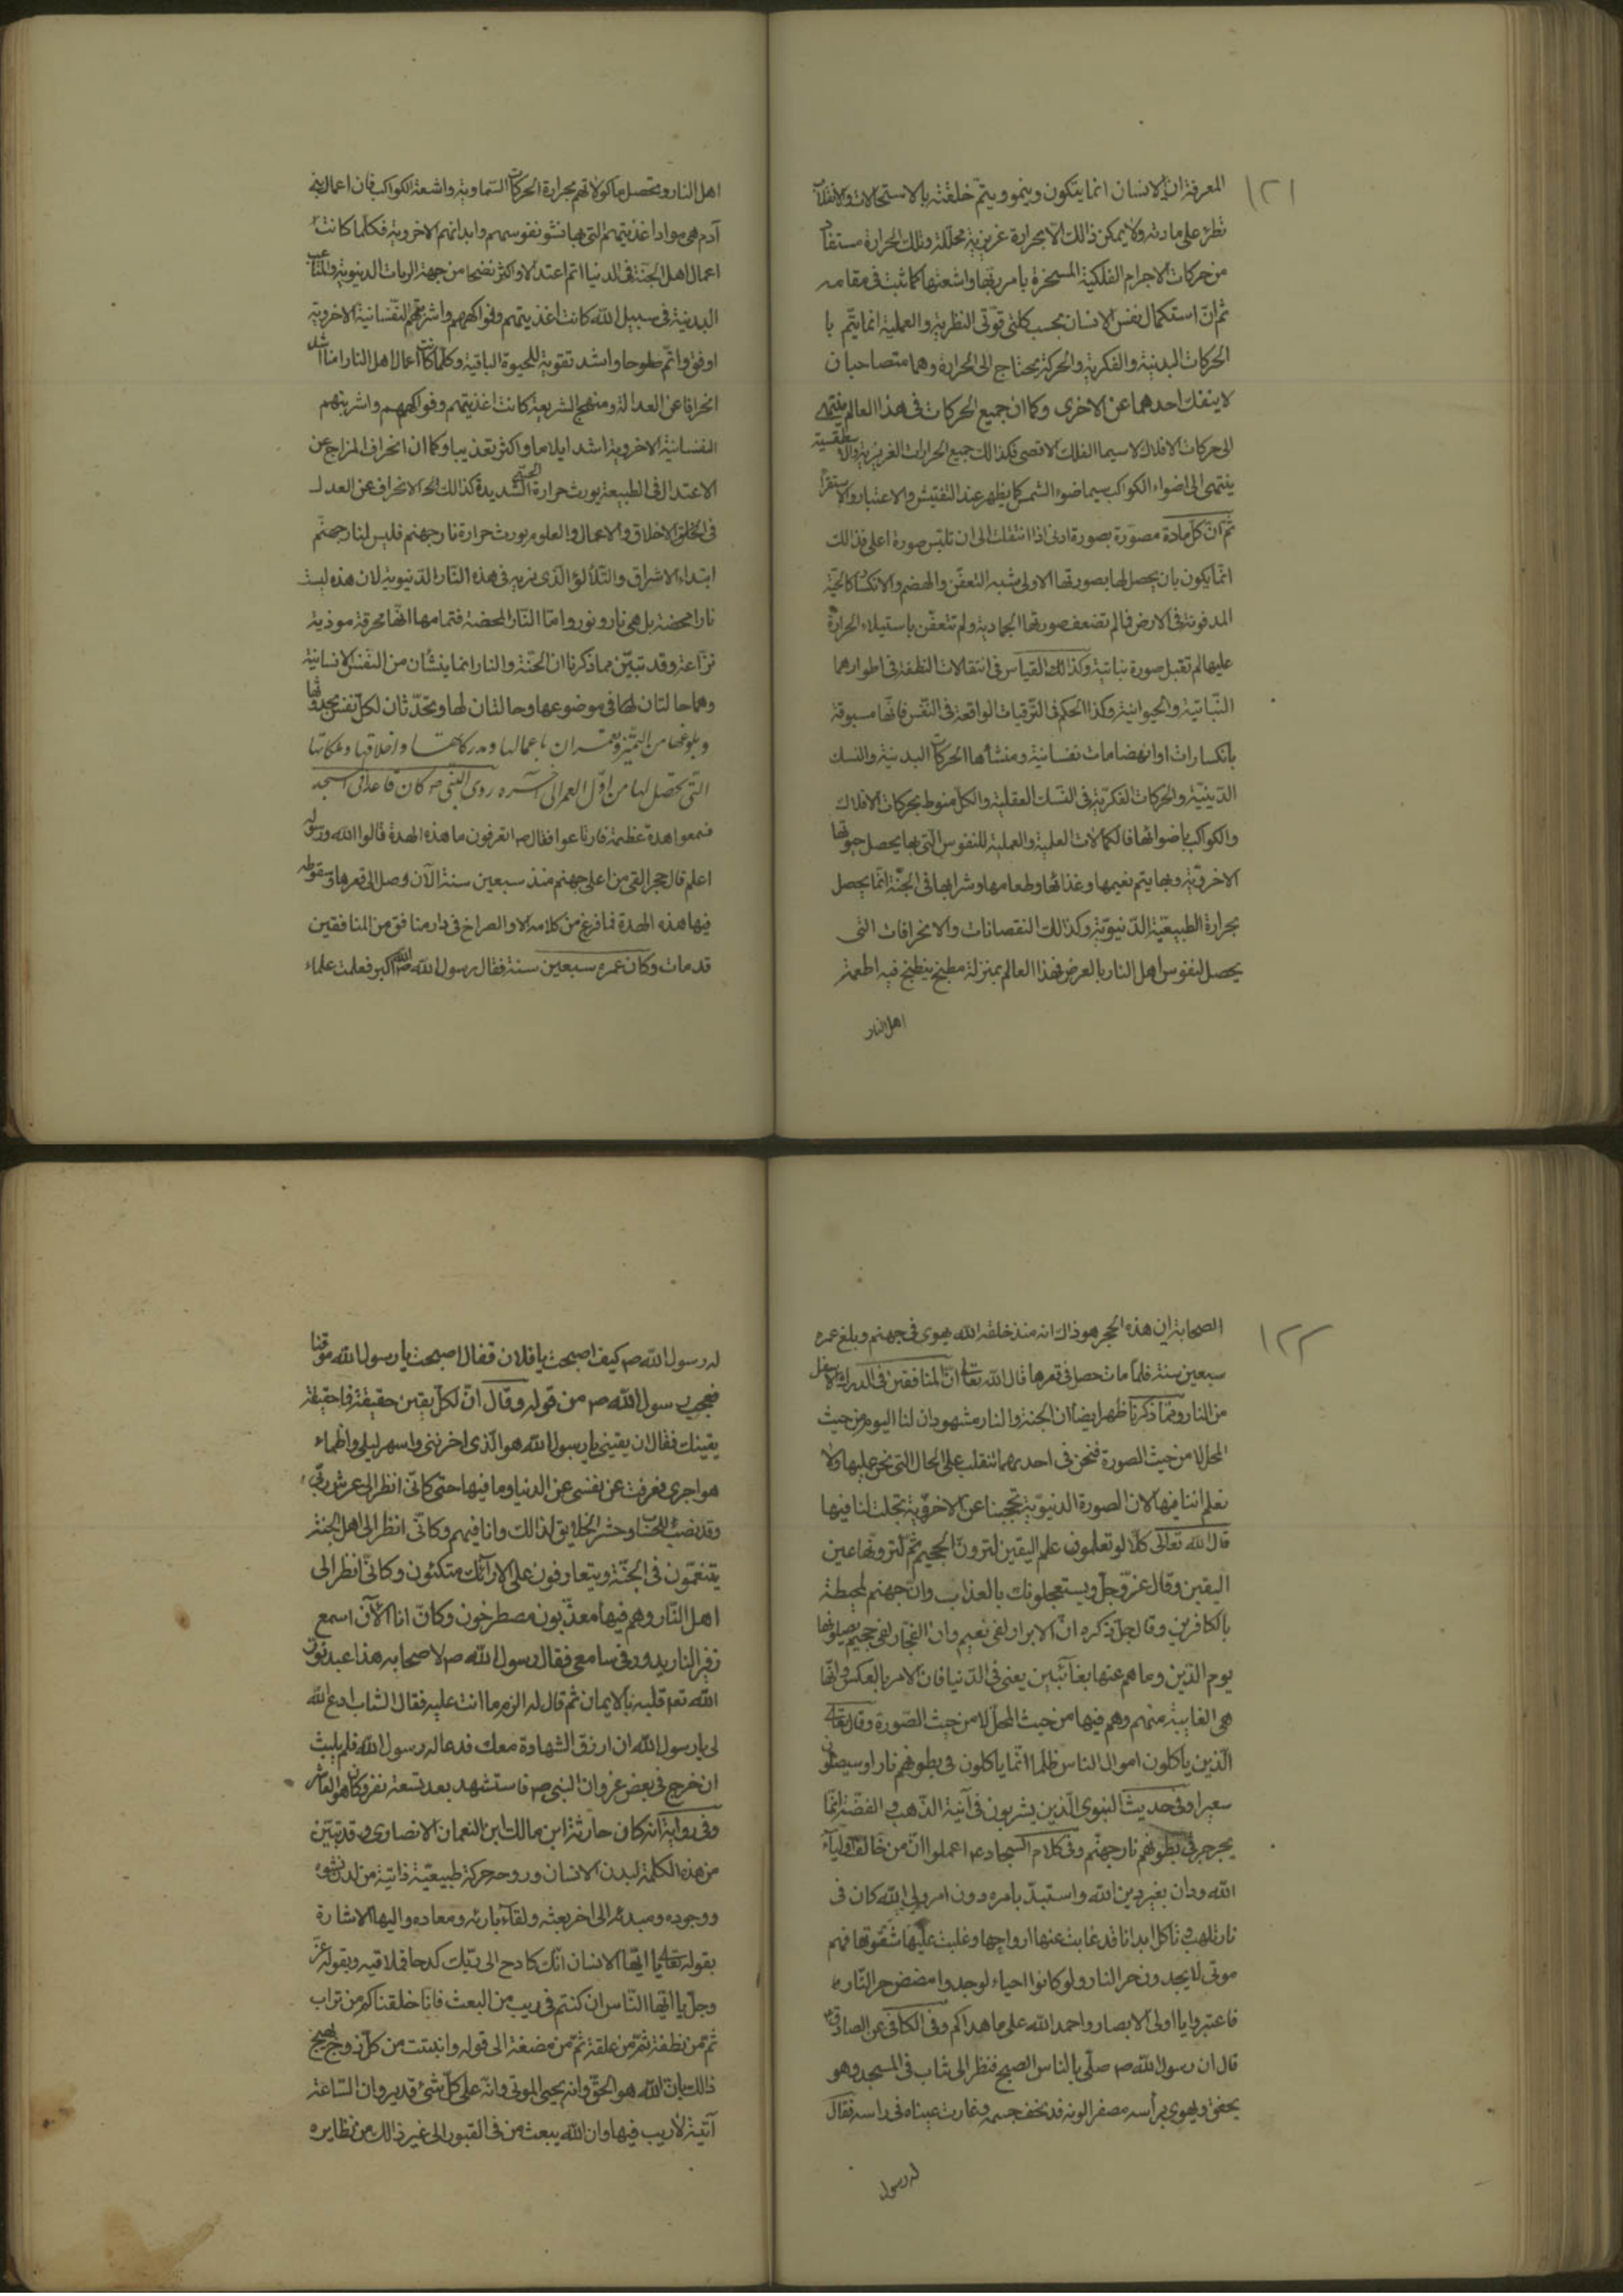 ١٢١
المعرفة ان الانسان انما يتكون وينمو ويتم خلقته بالاستحالات والانقلابات
تطرء على مادته ولا يمكن ذلك الا بحرارة غريزية محللة وتلك الحرارة مستفاد
من حركات الاجرام الفلكية المسخرة بامر ربها واشعتها كما ثبت فى مقامه
ثم ان استكمال نفس الانسان بحسب كلتى قوتى النظرية والعملية انما يتم با
الحركات البدنية والفكرية والحركة يحتاج الى الحرارة وهما متصاحبان
لا ينفك احدهما عن الاخرى وكما ان جميع الحركات فى هذا العالم ينتهى
الى حركات الافلاك لا سيما الفلك الاقصى فكذلك جميع الحرارات الغريزية والاسطقسية
ينتهى الى اضواء الكواكب سيما ضوء الشمس كما يظهر عند التفتيش والاعتبار والاستقراء
ثم ان كل مادة مصورة بصورة ادنى اذا انتقلت الى ان تلبس صورة اعلى فذلك
انما يكون بان يحصل لها بصورتها الاولى شبه التعفن والهضم والانكسار كالحبة
المدفونة فى الارض فما لم تضعف صورتها الجمادية ولم تتعفن باستيلاء الحرارة
عليها لم تقبل صورة نباتية وكذلك القياس فى انتقالات النطفة فى اطوارهما
النباتية والحيوانية وكذا الحكم فى الترقيات الواقعة فى النفس فانها مسبوقة
بانكسارات او انهضامات نفسانية ومنشأها الحركات البدنية والنسك
الدينية والحركات الفكرية فى النسك العقلية والكل منوط بحركات الافلاك
والكواكب باضوائها فالكمالات العلمية والعملية للنفوس التى بها يحصل حيوتها
الاخروية وبها يتم نعيمها وغذائها وطعامها وشرابها فى الجنة انما يحصل
بحرارة الطبيعية الدنيوية وكذلك النقصانات والانحرافات التى
يحصل لنفوس اهل النار بالعرض فهذا العالم بمنزلة مطبخ ينطبخ فيه اطعمة
اهل النار
اهل النار ويحصل ماكولاتهم بحرارة الحركات السماوية واشعة الكواكب فان اعمال بنى
آدم هى مواد اغذيتهم التى بها نشو نفوسهم وابدانهم الاخروية فكلما كانت
اعمال اهل الجنة فى الدنيا اتم اعتدالا واكثر نضجا من جهة الرياضات الدنيوية والمتاعب
البدنية فى سبيل الله كانت اغذيتهم وفواكههم واشربتهم النفسانية الاخروية
اوفق واتم صلوحا واشد تقوية للحيوة الباقية وكلما كانت اعمال اهل النار اشد
انحرافا عن العدالة ومنهج الشريعة كانت اغذيتهم وفواكههم واشربتهم
النفسانية الاخروية اشد ايلاما واكثر تعذيبا وكما ان انحراف المزاج عن
الاعتدال فى الطبيعة يورث حرارة الحمى الشديدة كذلك الانحراف عن العدل
فى الخلق الاخلاق والاعمال والعلوم يورث حرارة نار جهنم فليس لنار جهنم
ابتداء الاشراق والتلألؤ الذى نريه فى هذه النار الدنيوية لان هذه ليست
نارا محضة بل هى نار ونور واما النار المحضة فتمامها انها محرقة موذية
نزاعة وقد تبين مما ذكرنا ان الجنة والنار انما ينشأن من النفس الانسانية
وهما حالتان لها فى موضوعها وحالتان لها وتحدثان لكل نفس بحدوثها
وبلوغها من التميز وتعمران باعمالها ومدركاتها واخلاقها وملكاتها
التى تحصل لها من اول العمر الى آخره روى النبى ص كان قاعدا فى المسجد
فسمعوا هدة عظيمة فارتاعوا فقال ص اتعرفون ما هذه الهدة قالوا الله ورسوله
اعلم قال حجر القى من اعلى جهنم منذ سبعين سنة الآن وصل الى قعرها وسقوطه
فيها هذه الهدة فما فرغ من كلامه الا والصراخ فى دار منافق من المنافقين
قد مات وكان عمره سبعين سنة فقال رسول الله ص الله اكبر فعلمت علماء
١٢٢
الصحابة ان هذه الحجر هو ذاك انه منذ خلقه الله يهوى فى جهنم وبلغ عمره
سبعين سنة فلما مات حصل فى قعرها قال الله تعالى ان المنافقين فى الدرك الاسفل
من النار ومما ذكرنا ظهر ايضا ان الجنة والنار مشهودان لنا اليوم من حيث
المحل لا من حيث الصورة فنحن فى احديهما نتقلب على الحال التى نحن عليها ولا
نعلم اننا فيها لان الصورة الدنيوية تحجبنا عن الاخروية تجلت لنا فيها
قال الله تعالى كلا لو تعلمون علم اليقين لترون الجحيم ثم لترونها عين
اليقين وقال عز وجل ويستعجلونك بالعذاب وان جهنم لمحيطة
بالكافرين وقال جل ذكره ان الابرار لفى نعيم وان الفجار لفى جحيم يصلونها
يوم الدين وما هم عنها بغآئبين يعنى فى الدنيا فان الامر بالعكس وانها
هى الغايبة منهم وهم فيها من حيث المحل لا من حيث الصورة وقال تعالى
الذين ياكلون اموال الناس ظلما انما ياكلون فى بطونهم نارا وسيصلون
سعيرا وفى حديث النبوى الذين يشربون فى آنية الذهب والفضة انما
يجرجر فى بطونهم نار جهنم وفى كلام السجاد ع اعملوا ان من خالف اولياء
الله ودان بغير دين الله واستبد بامره دون امر ولى الله كان فى
نار تلهب تاكل ابدانا قد غابت عنها ارواحها وغلبت عليها شقوتها فهم
موتى لا يجدون حر النار ولو كانوا احياء لوجدوا مضض حر النار
فاعتبروا يا اولى الابصار واحمد الله على ما هداكم وفى الكافى عن الصادق ع
قال ان رسول الله ص صلى بالناس الصبح فنظر الى شاب فى المسجد وهو
يخفق ويهوى برأسه مصفر الونه قد نحف جسمه وغارت عيناه فى راسه فقال
له رسول
له رسول الله ص كيف اصبحت يا فلان فقال اصبحت يا رسول الله موقنا
فعجب رسول الله ص من قوله وقال ان لكل يقين حقيقة فما حقيقة
يقينك فقال ان يقينى يا رسول الله هو الذى احزننى واسهر ليلى واظماء
هواجرى فعزفت عن نفسى عن الدنيا وما فيها حتى كانى انظر الى عرش ربى
وقد نصب للحساب وحشر الخلايق لذلك وانا فيهم وكانى انظر الى اهل الجنة
يتنعمون فى الجنة ويتعارفون على الارآئك متكئون وكانى انظر الى
اهل النار وهم فيها معذبون مصطرخون وكان انا الآن اسمع
زفير النار يدور فى سامعى فقال رسول الله ص لاصحابه هذا عبد نور
الله تع قلبه بالايمان ثم قال له الزم ما انت عليه فقال الشاب ادع الله
لى يا رسول الله ان ارزق الشهادة معك فدعا له رسول الله فلم يلبث
ان خرج فى بعض غزوات النبى ص فاستشهد بعد تسعة نفر وكان هو العاشر
وفى رواية انه كان حارثة ابن مالك ابن النعمان الانصارى وقد تبين
من هذه الكلمة لبدن الانسان وروحه حركة طبيعية ذاتية من لدن نشوه
ووجوده ومبدئه الى اخر بعثه ولقآء بارئه ومعاده واليها الاشارة
بقوله تعالى يا ايها الانسان انك كادح الى ربك كدحا فملاقيه وبقوله عز
وجل يا ايها الناس ان كنتم فى ريب من البعث فانا خلقناكم من تراب
ثم من نطفة ثم من علقة ثم من مضغة الى قوله وانبتت من كل زوج بهيج
ذلك بان الله هو الحق وانه يحيى الموتى وانه على كل شئ قدير وان الساعة
آتية لا ريب فيها وان الله يبعث من فى القبور الى غير ذلك من نظايره